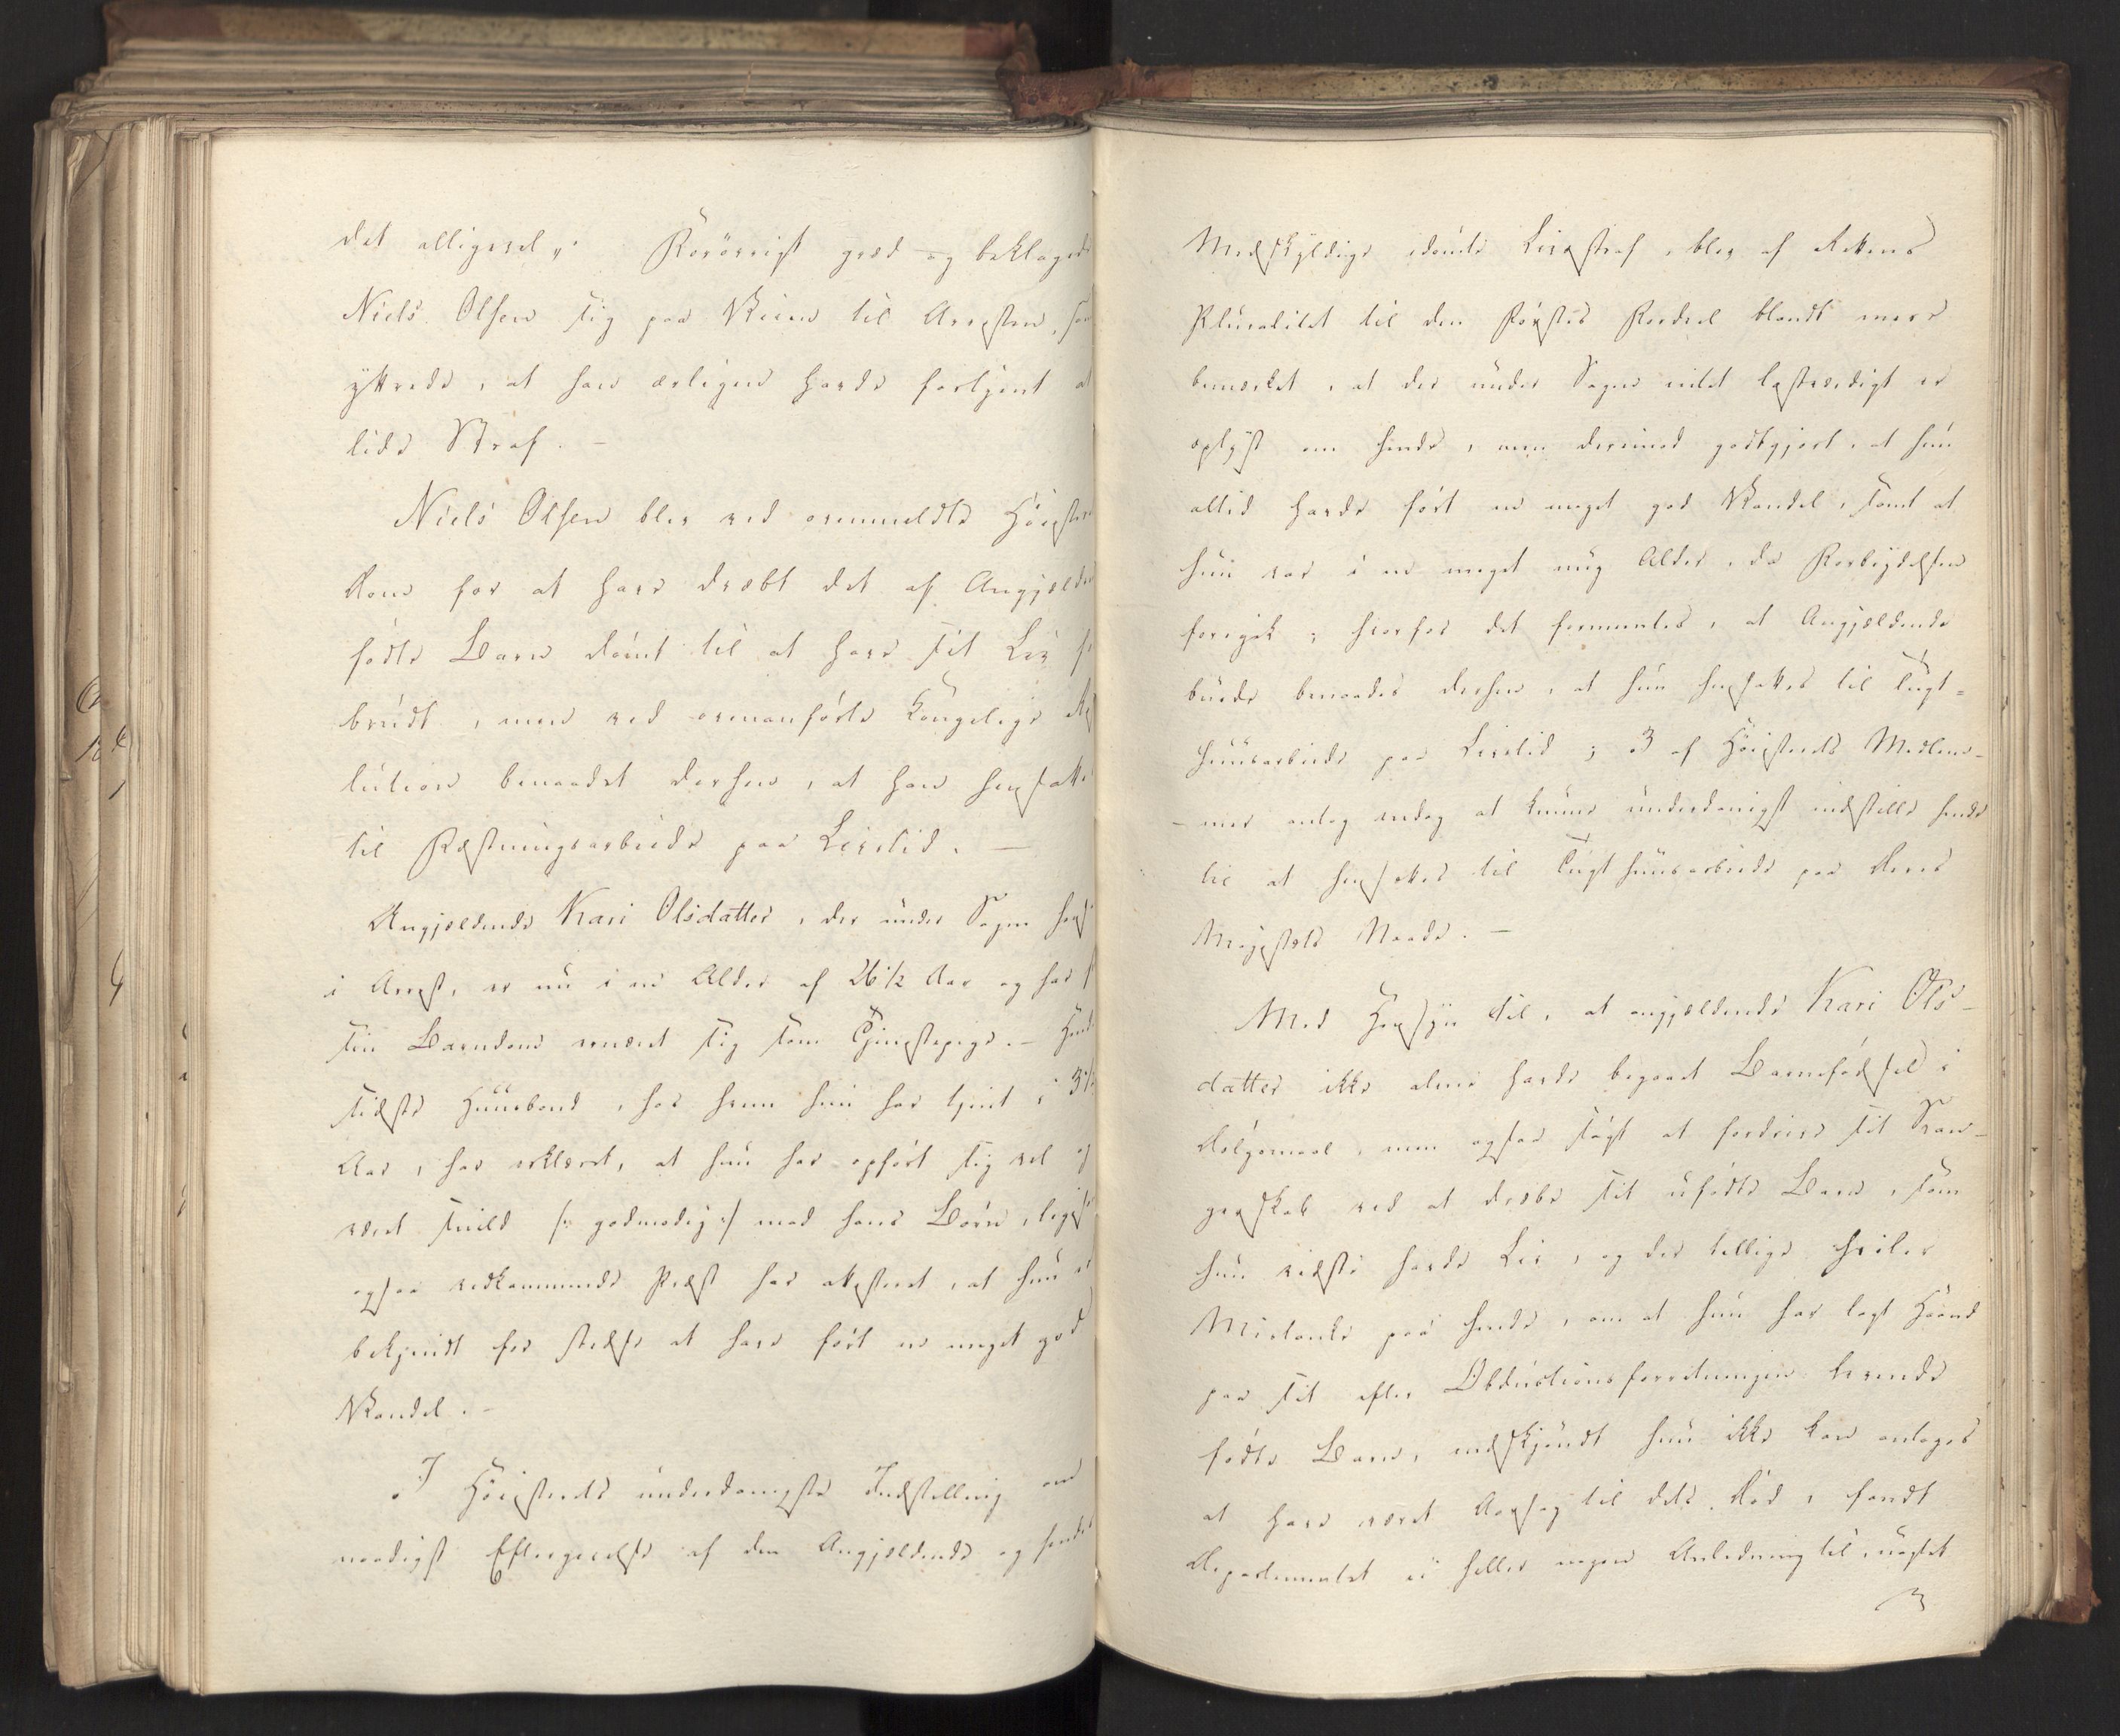 det alligevel". Forövrigt græd og beklagede
Niels Olsen sig paa Veien til Arresten, som
yttrede, at han ærligen havde fortjent at
lide Straf. –
Niels Olsen blev ved ovenmeldte Höieste
Dom for at have dræbt det af Angjældende
födte Barn dömt til at have sit Liv
brudt, men ved ovenanförte Kongelige
lution benaadet derhen, at han hensattes
til Fæstningsarbeide paa Livstid. –
Angjældende Kari Olsdatter, der under Sagen
i Arrest, er nu i en Alder af 26 1/2 Aar og har
sin Barndom ernæret sig som Tjenestepige. – Hendes
sidste Huusbond, hos hvem hun har tjent i 3 1/2
Aar, har erklæret, at hun har opfört sig vel og
været snild /: godmodig :/ mod hans Börn, ligesom
ogsaa vedkommende Præst har attesteret, at hun er
bekjendt for stedse at have fört en meget god
Vandel. –
I Höiesterets underdanigste Indstilling om
naadigst Eftergivelse af den Angjældende og hendes
Medskyldige idömte Livsstraf, blev af Rettens
Pluralitet til den Förstes Fordeel blandt mere
bemærket, at der under Sagen intet lastværdigt er
oplyst om hende, men derimod godtgjort, at hun
altid havde fört en meget god Vandel, samt at
hun var i en meget ung Alder, da Forbrydelsen
foregik; hvorfor det formentes, at Angjældende
burde benaades derhen, at hun hensattes til Tugt=
huusarbeide paa Livstid; 3 af Höiesterets Medlem-
- mer antog endog at kunne underdanigst indstille hende
til at hensættes til Tugthuusarbeide paa Deres
Majestæts Naade. –
Med Hensyn til, at angjældende Kari Ols-
datter ikke alene havde begaaet Barnefödsel i
Dölgsmaal, men ogsaa sögt at fordrive sit Svan-
gerskab ved at dræbe sit ufödte Barn, som
hun vidste havde Liv, og der tillige hviler
Mistanke paa hende, om at hun har lagt Haand
paa sit efter Obductionsforretningen levende
födte Barn, endskjöndt hun ikke kan antages
at have været Aarsag til dets Död, fandt
Departementet ei heller nogen Anledning til, uagtet